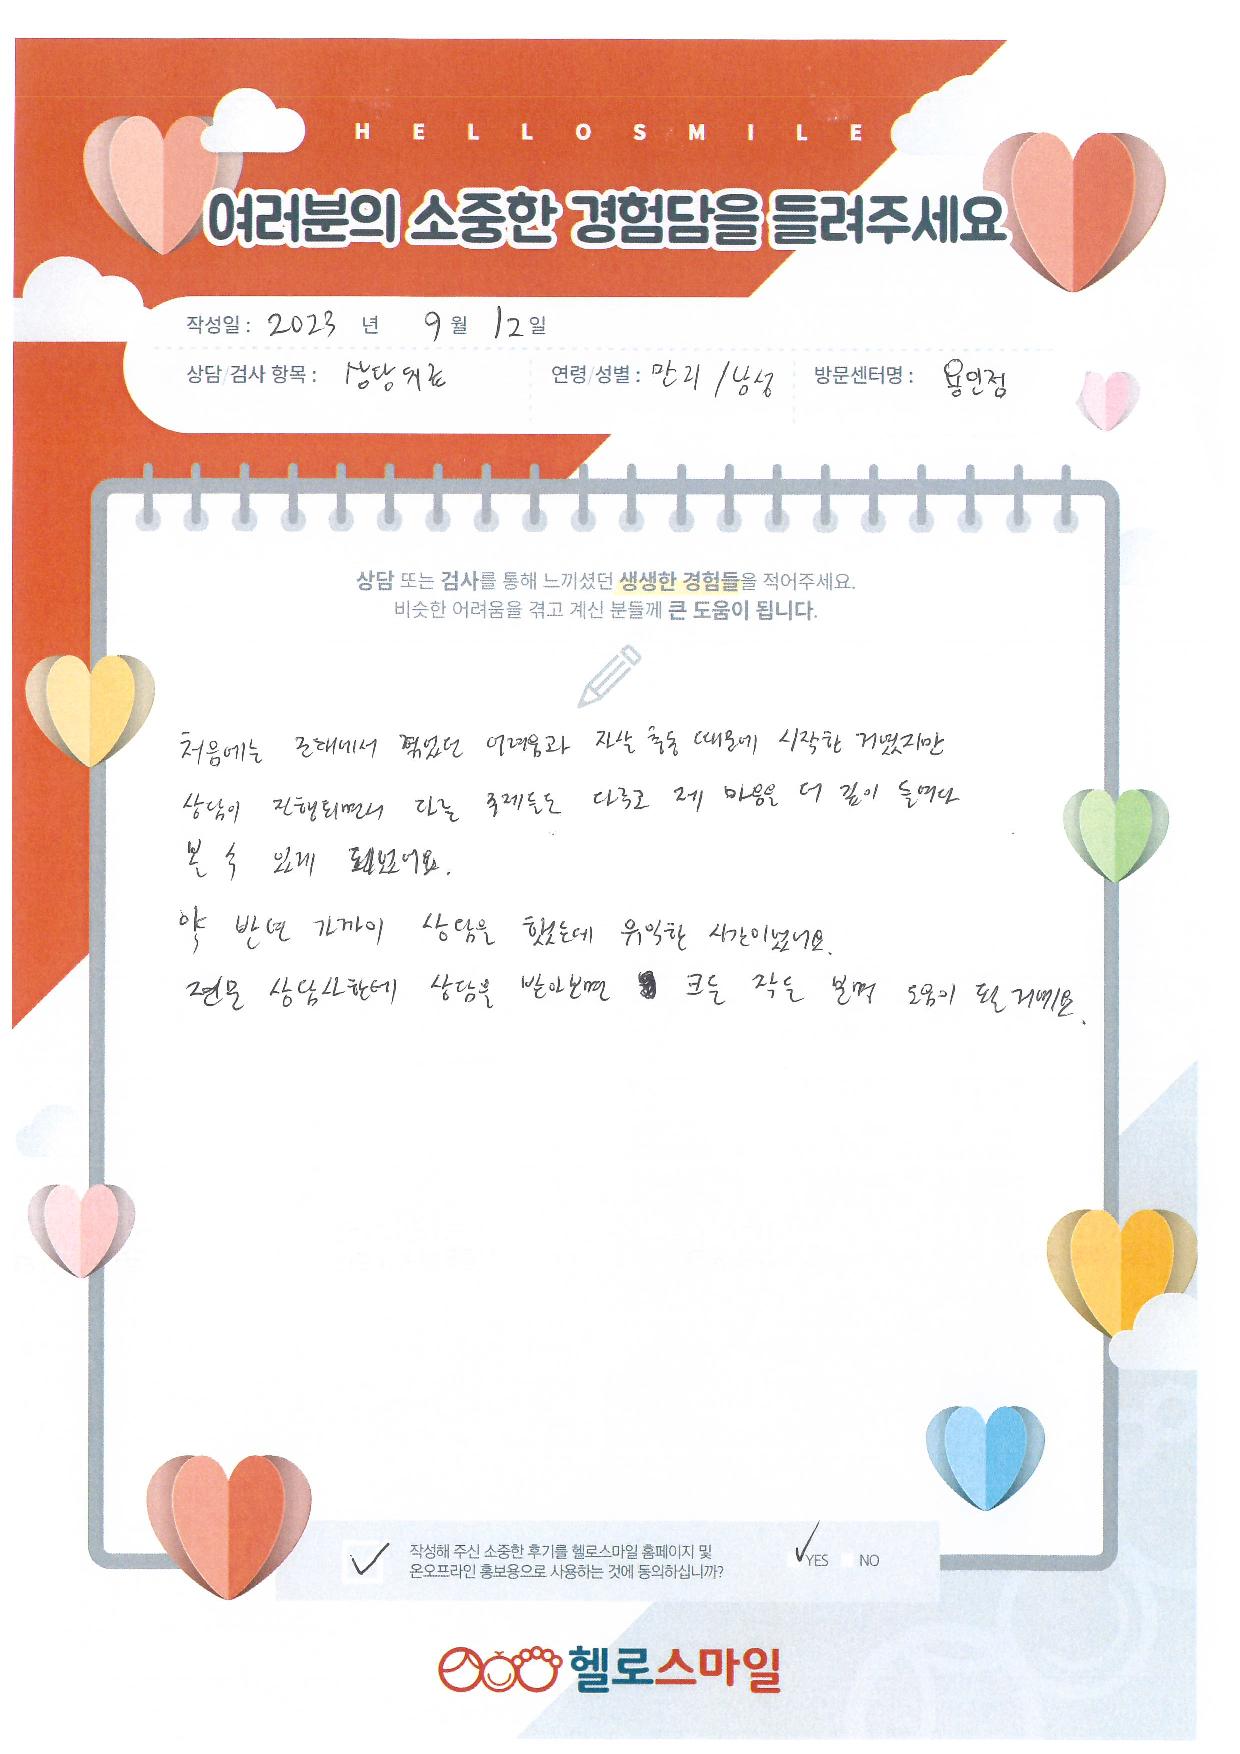 HELLOSMILE
여러분의 소중한 경험담을 들려주세요
작성일 : 2023 년 9 월 12 일
상담/검사 항목 : 상담치료 연령/성별 : 만 21 /남성 방문센터명 : 용인점
상담 또는 검사를 통해 느끼셨던 생생한 경험들을 적어주세요.
비슷한 어려움을 겪고 계신 분들께 큰 도움이 됩니다.
처음에는 군대에서 겪었던 어려움과 자살 충동 때문에 시작한 거였지만
상담이 진행되면서 다른 주제들도 다루고 제 마음을 더 깊이 들여다
볼 수 있게 되었어요.
약 반년 가까이 상담을 했는데 유익한 시간이었어요.
전문 상담사한테 상담을 받아보면 크든 작든 분명 도움이 될 거예요.
작성해 주신 소중한 후기를 헬로스마일 홈페이지 및
온오프라인 홍보용으로 사용하는 것에 동의하십니까?
YES NO
헬로스마일